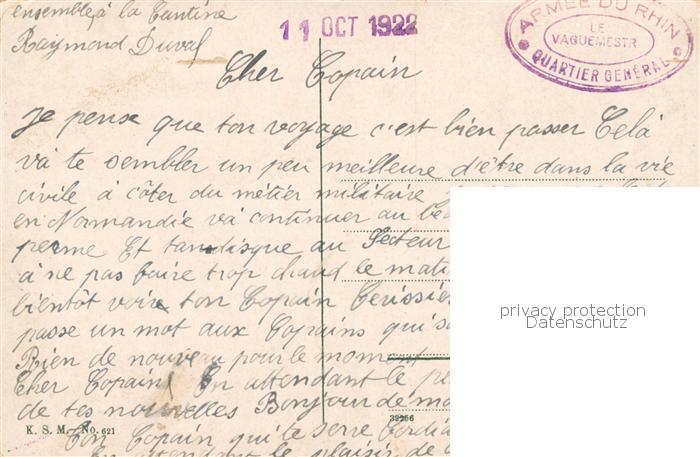 ensemble à la Cantine
Raymond Duval
11 OCT 1922
ARMÉE DU RHIN
LE
VAGUEMESTR
QUARTIER GÉNÉRAL
Cher Copain
Je pense que ton voyage c'est bien passer Celà
và te sembler un peu meilleure d'être dans la vie
civile à côter du métier militaire
en Normandie và continuer au
perme Et tandisque au Secteur
à ne pas faire trop chaud le mati
bientôt voir ton Copain
passe un mot aux Copains qui
Rien de nouveau pour le moment
Cher Copain En attendant le
de tes nouvelles Bonjour de
Ton Copain qui te serre
En attendant le plaisir de
privacy protection
Datenschutz
K. S. M. No. 621
32256